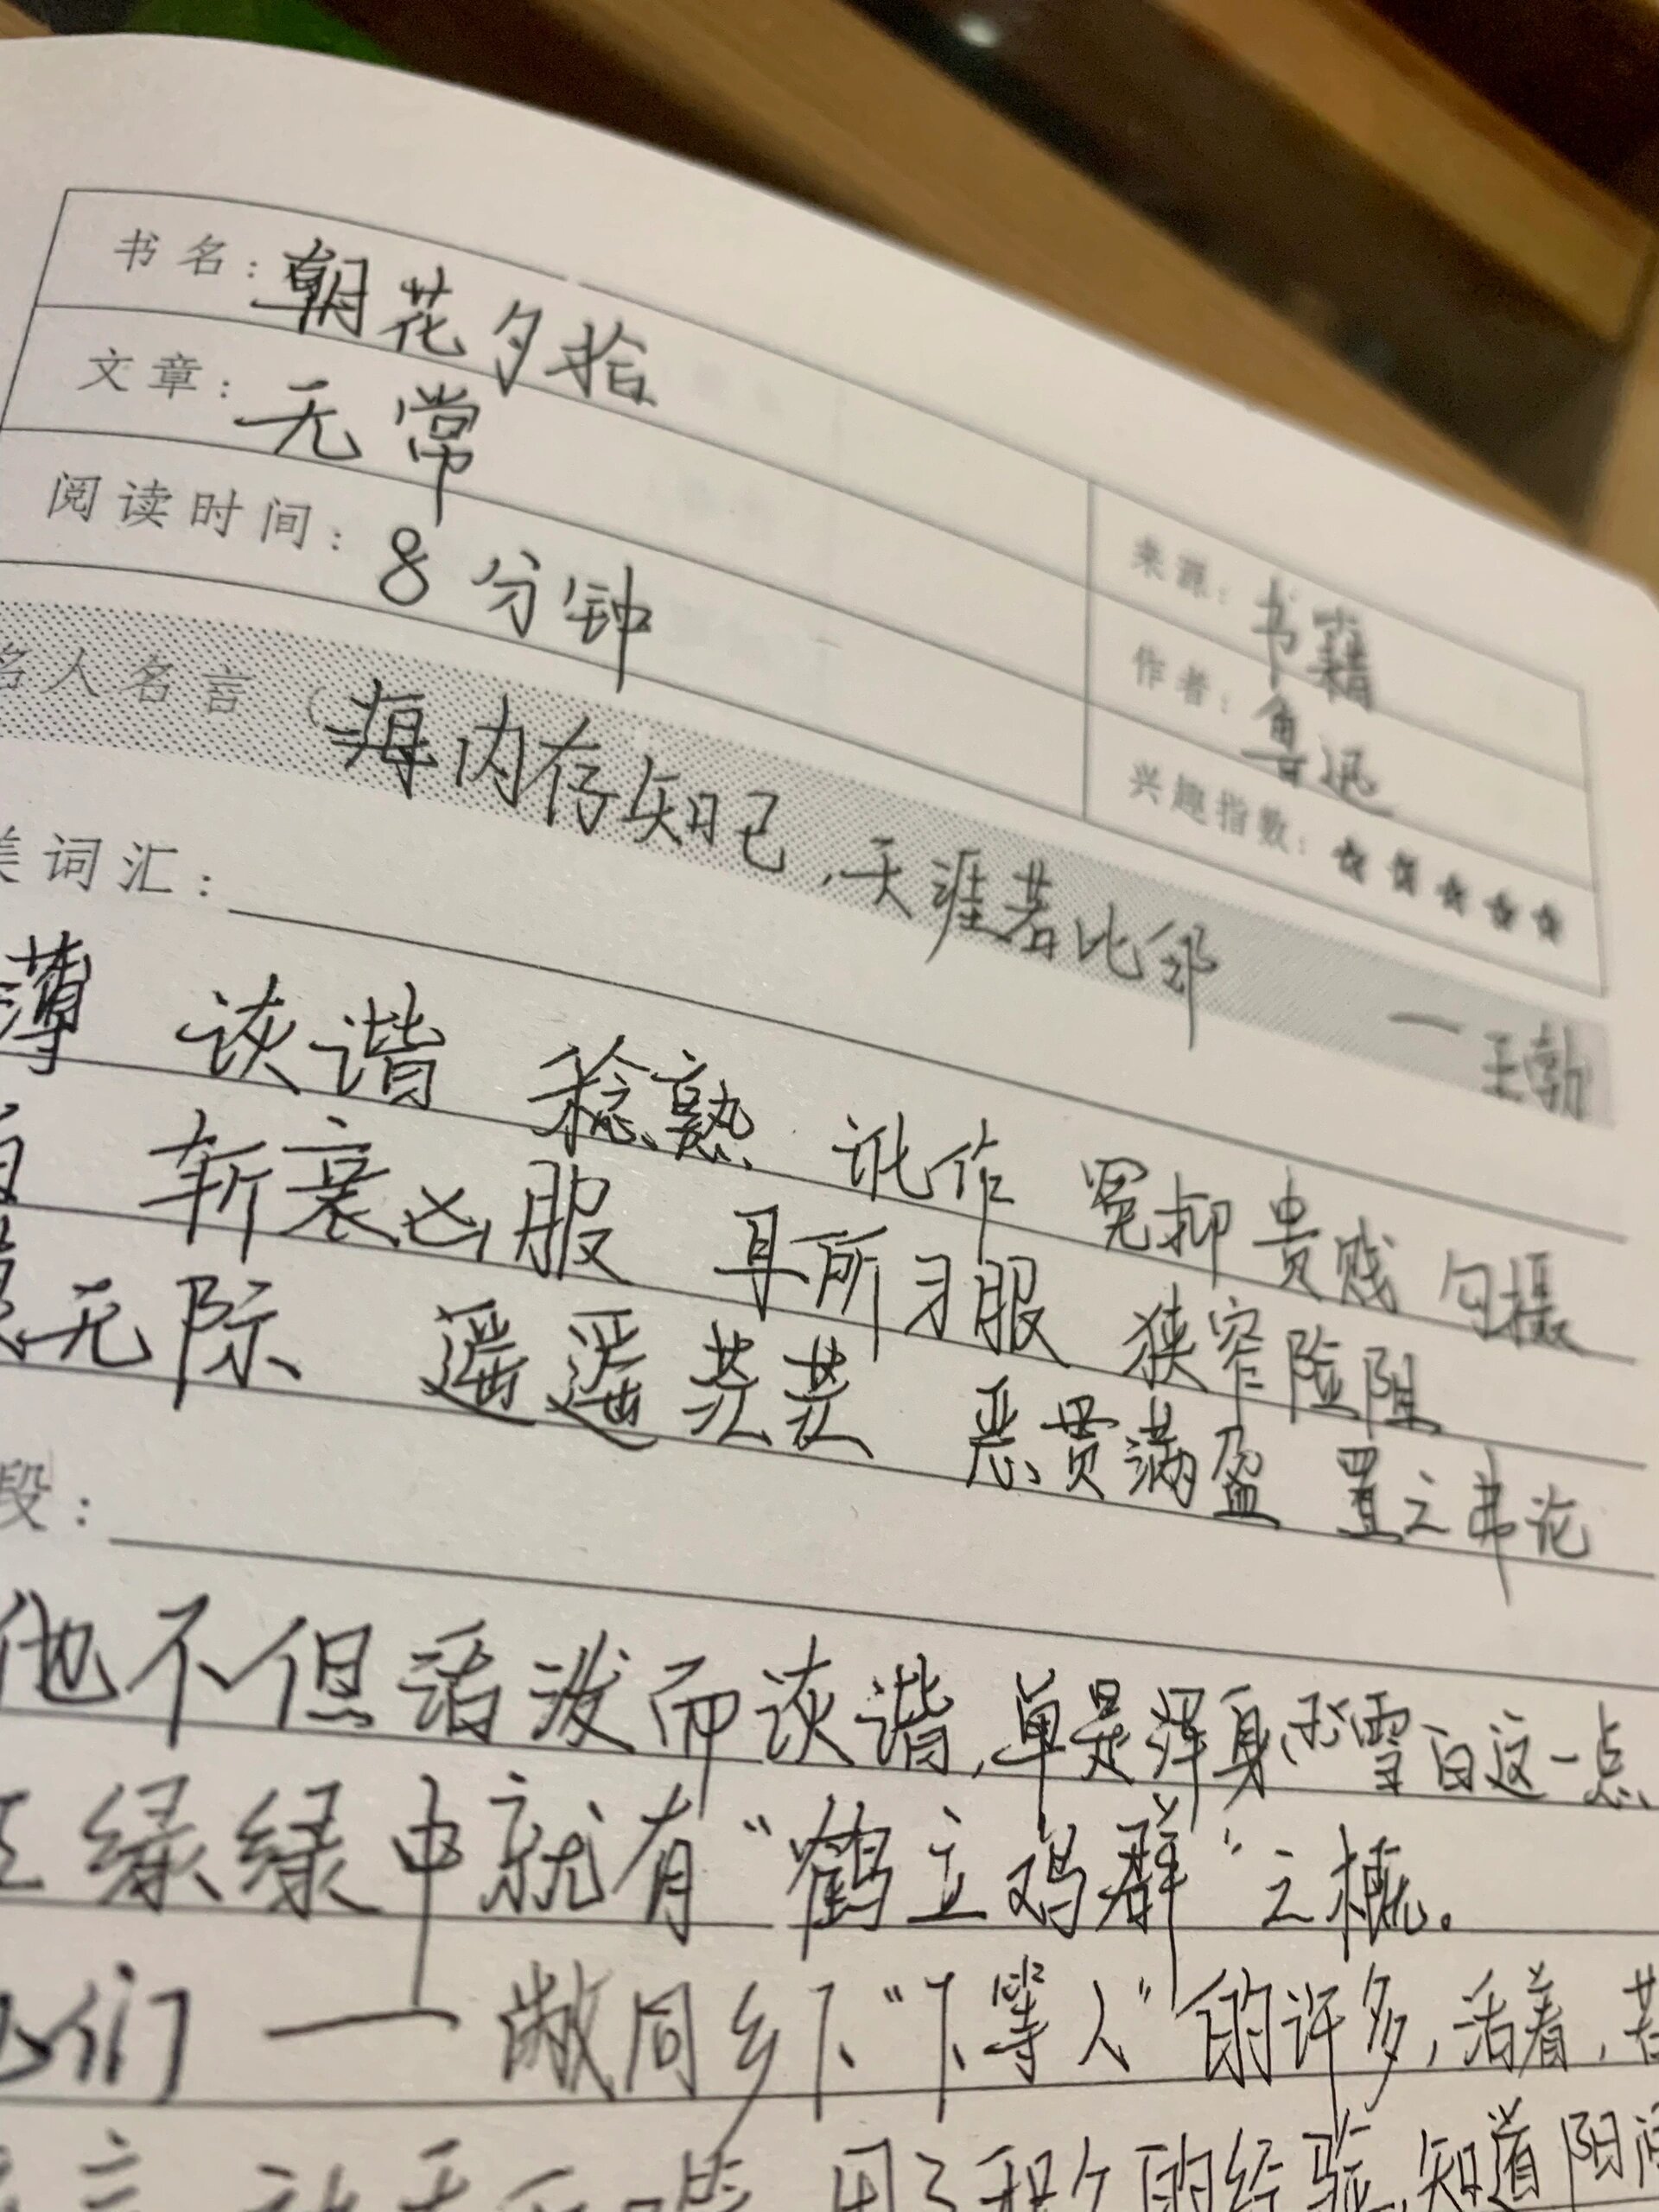 书名：朝花夕拾
来源：书籍
文章：无常
作者：鲁迅
阅读时间：8分钟
兴趣指数：★★★★★
名人名言（海内存知己，天涯若比邻 —王勃
美词汇：
薄 诙谐 稔熟 讹作 冤抑 贵贱 勾摄
斩衰凶服 耳所习服 狭窄险阻
无际 遥遥茫茫 恶贯满盈 置之弗论
段：
他不但活泼而诙谐，单是浑身雪白这一点
红绿绿中就有“鹤立鸡群”之概。
他们——敝同乡下“下等人”的许多，活着，苦
积久的经验，知道阳间